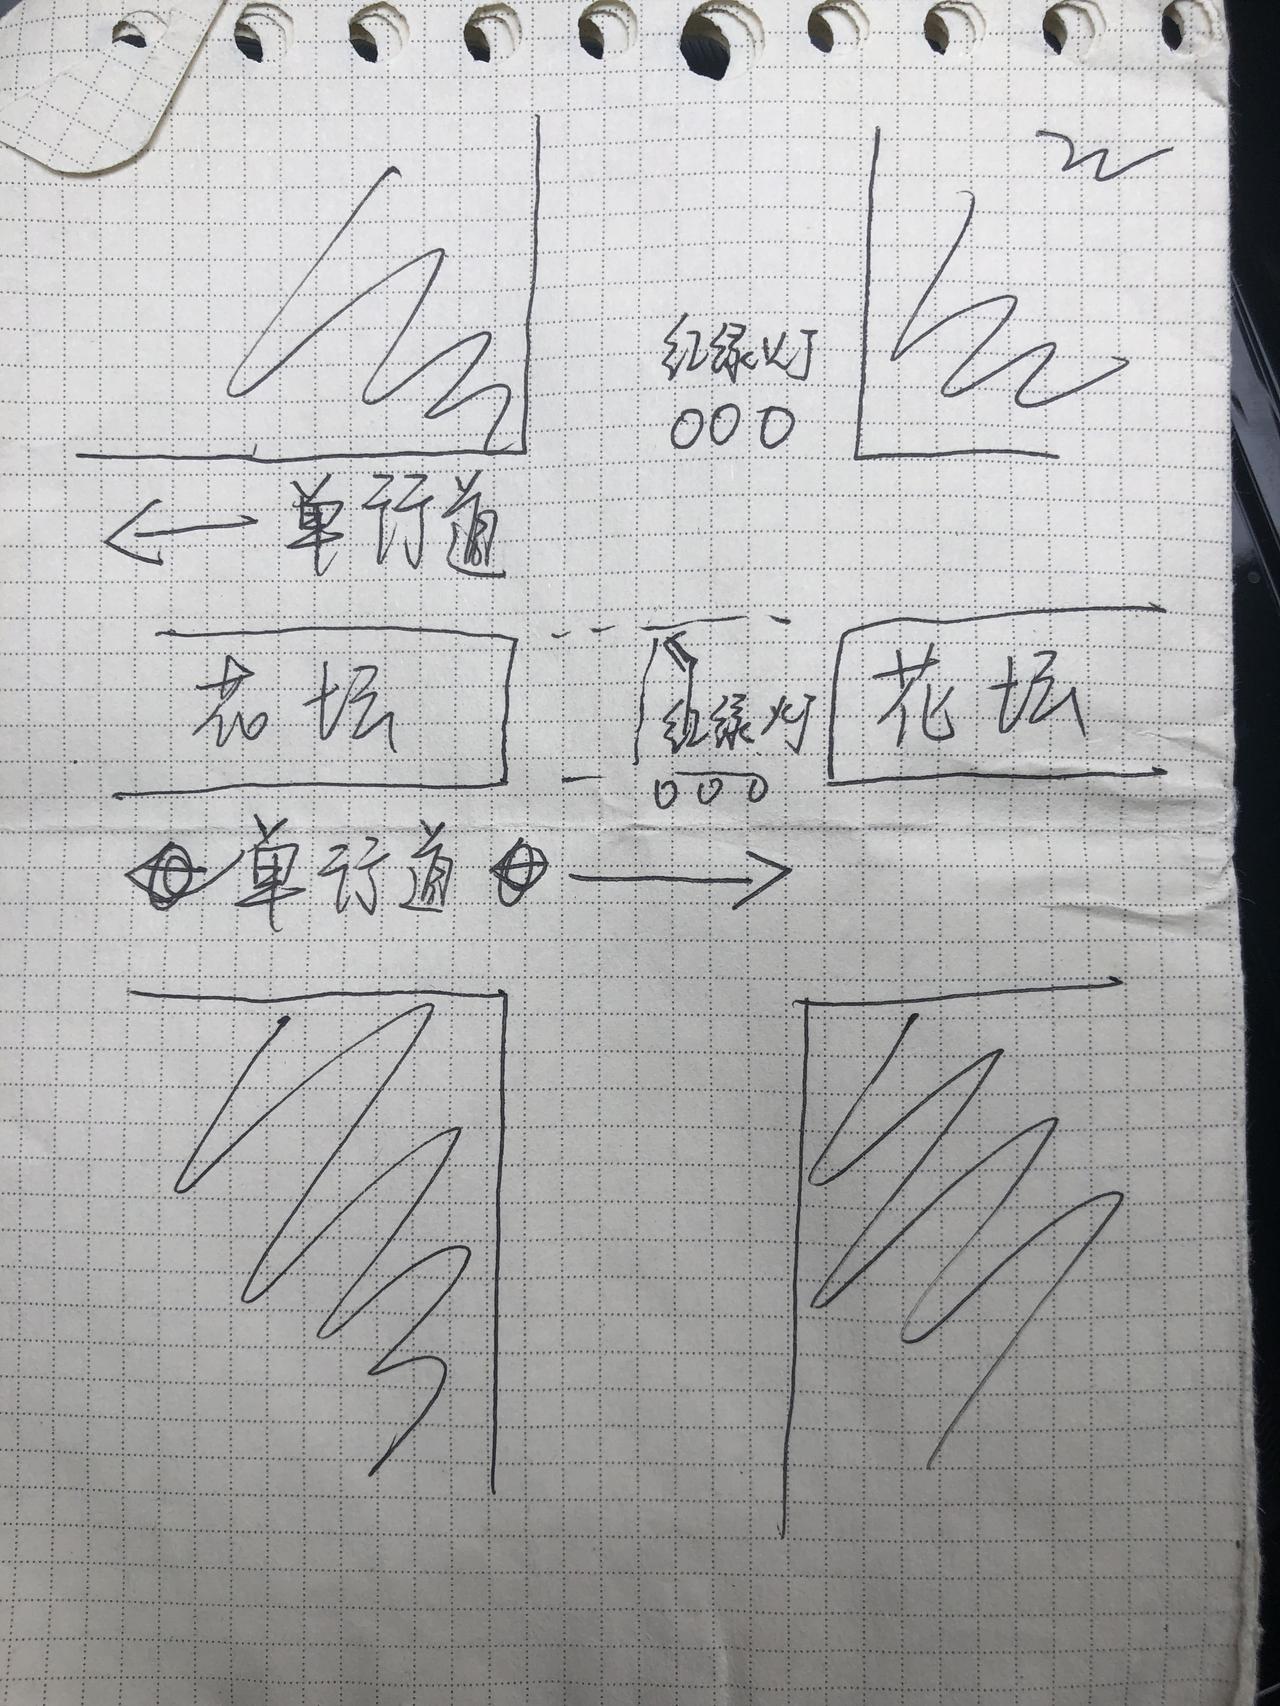 红绿灯
单行道
花坛
红绿灯
花坛
单行道